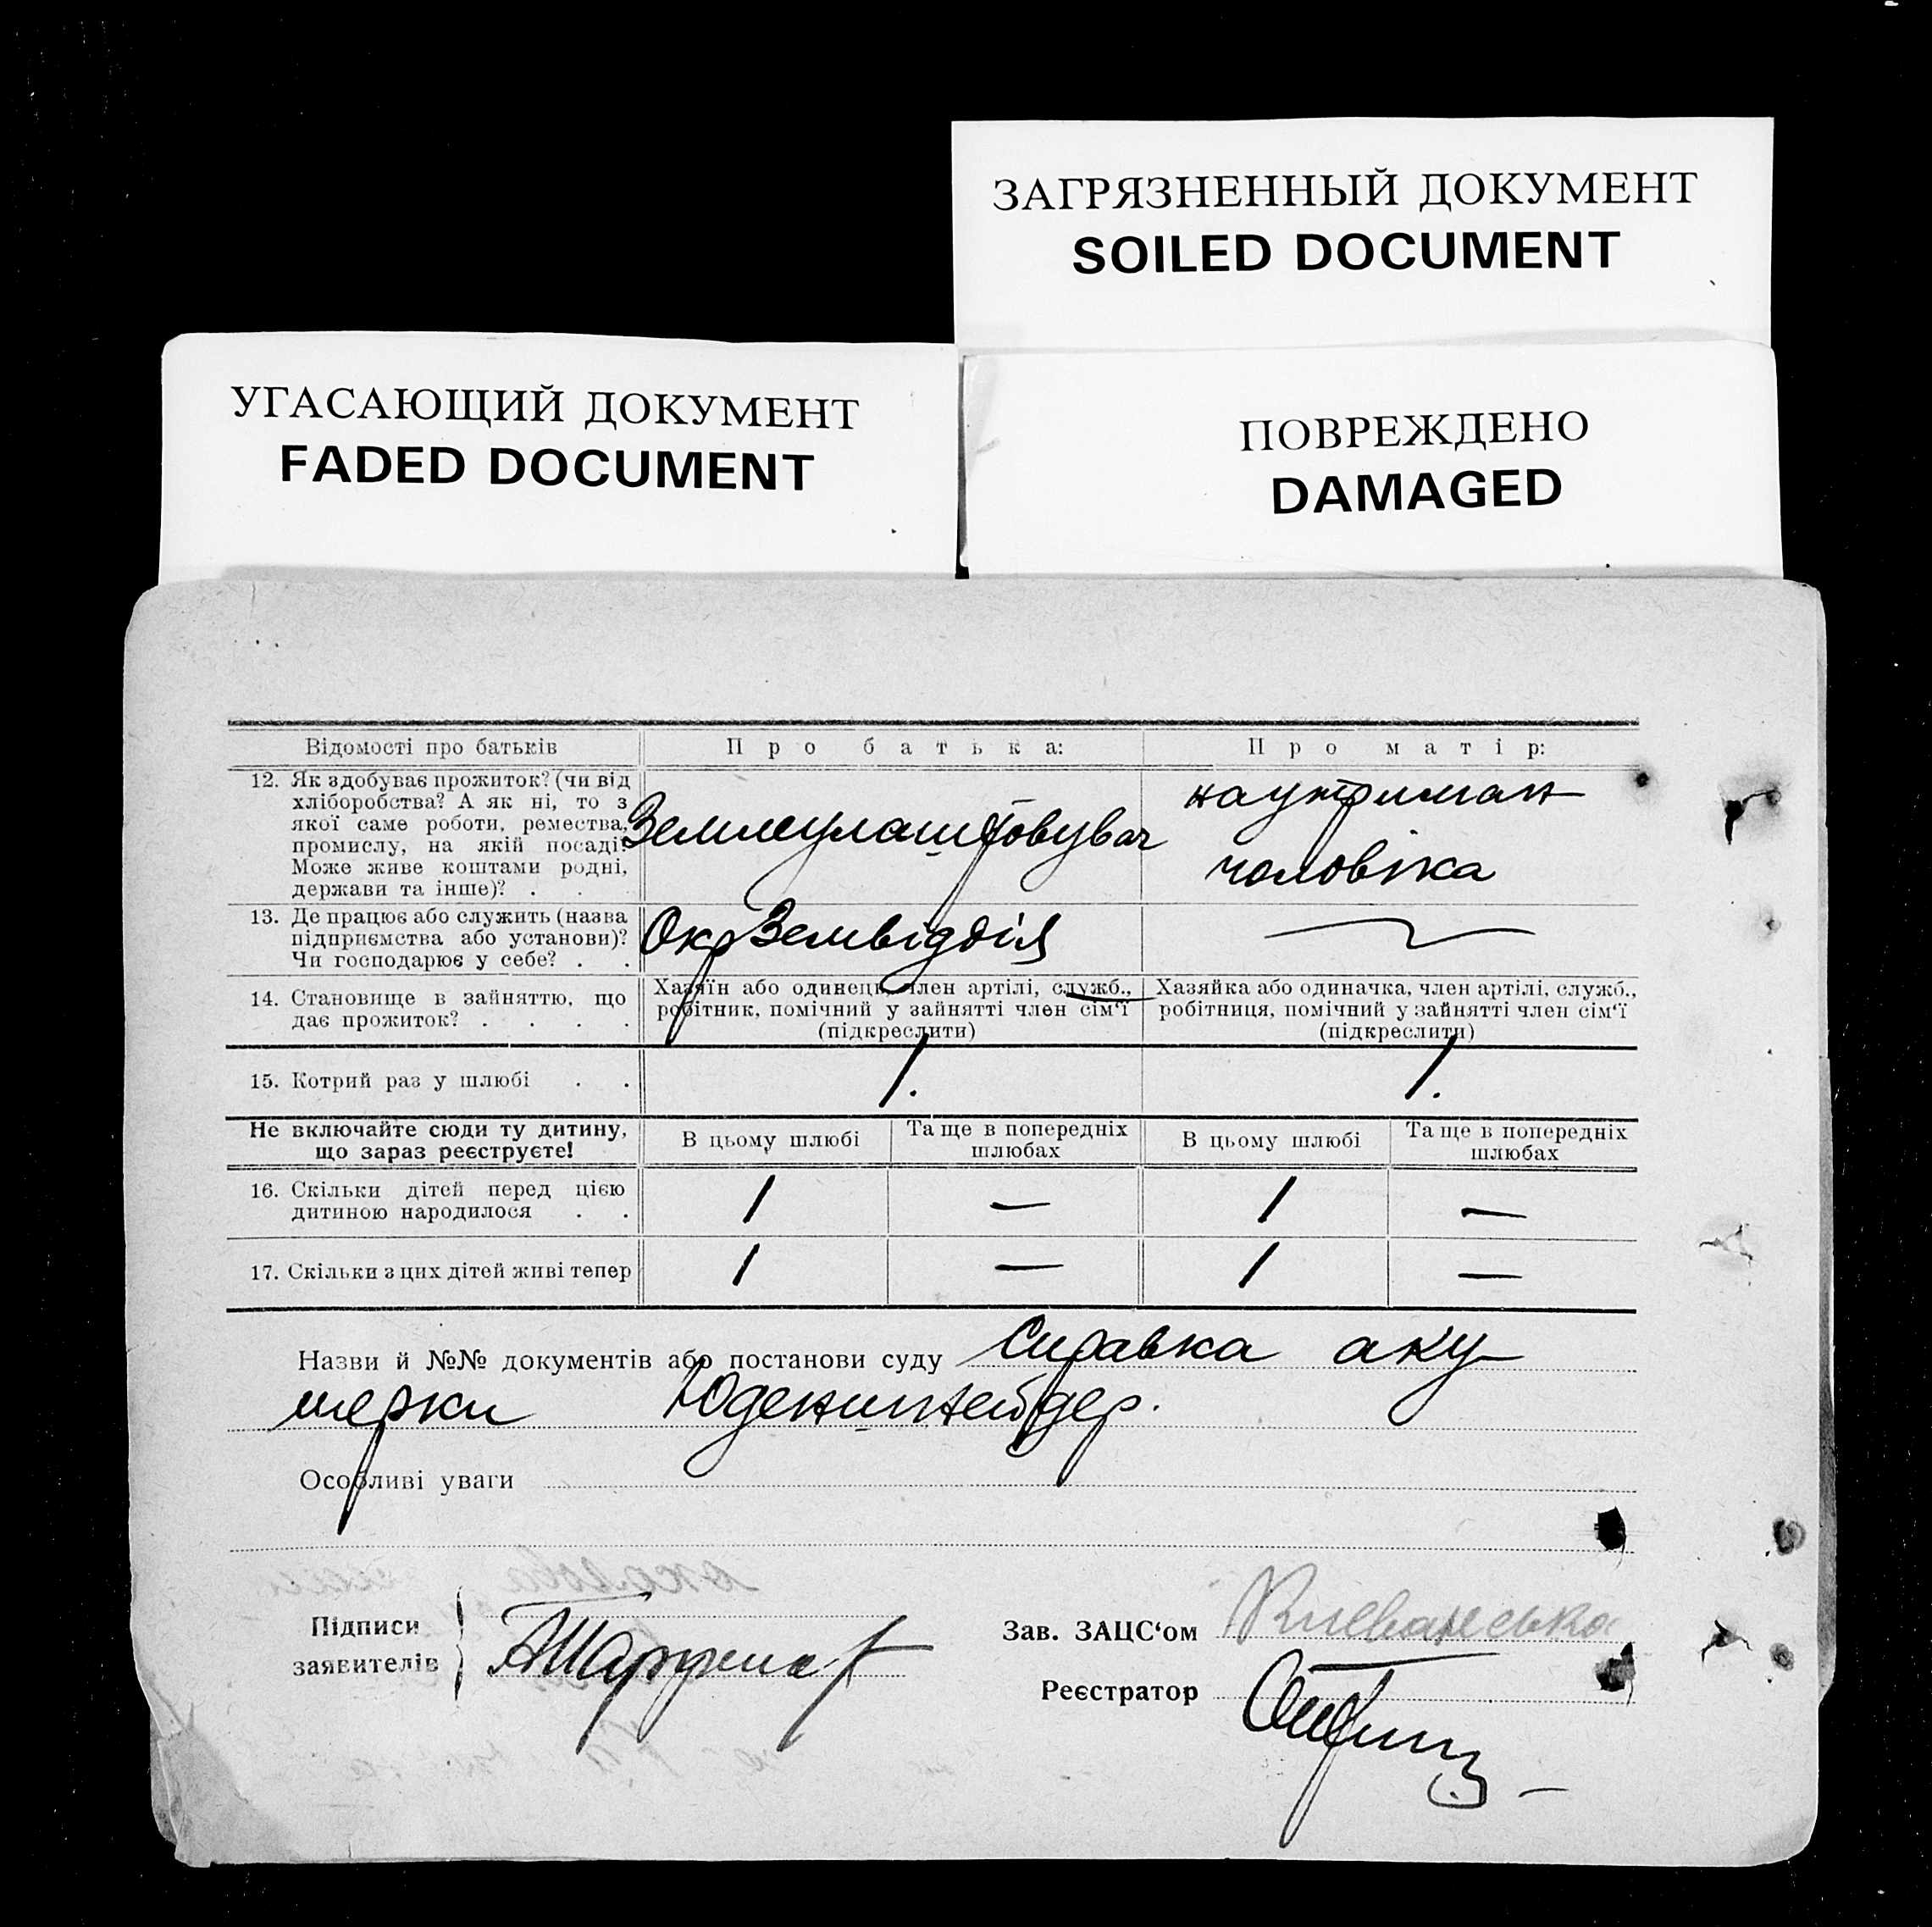 ЗАГРЯЗНЕННЫЙ ДОКУМЕНТ
SOILED DOCUMENT
УГАСАЮЩИЙ ДОКУМЕНТ
FADED DOCUMENT
ПОВРЕЖДЕНО
DAMAGED
Відомості про батьків
Про батька:
Про матір:
12. Як здобуває прожиток? (чи від
хліборобства? А як ні, то з
якої саме роботи, ремества,
промислу, на якій посаді?
Може живе коштами родні,
держави та інше)? . .
Землеулаштовувач
на утриман
чоловіка
13. Де працює або служить (назва
підприємства або установи)?
Чи господарює у себе? . .
ОкрЗемвідділ
—
14. Становище в зайняттю, що
дає прожиток? . . . .
Хазяїн або одинець, член артілі, служб.,
робітник, помічний у зайнятті член сім‘ї
(підкреслити)
Хазяйка або одиначка, член артілі, служб.,
робітниця, помічний у зайнятті член сім‘ї
(підкреслити)
15. Котрий раз у шлюбі . .
1.
1.
Не включайте сюди ту дитину,
що зараз реєструєте!
В цьому шлюбі
Та ще в попередніх
шлюбах
В цьому шлюбі
Та ще в попередніх
шлюбах
16. Скільки дітей перед цією
дитиною народилося . .
1 — 1 —
17. Скільки з цих дітей живі тепер
1 — 1 —
Назви й №№ документів або постанови суду Справка аку
шерки
Особливі уваги
Підписи
заявителів
Зав. ЗАЦС‘ом
Реєстратор